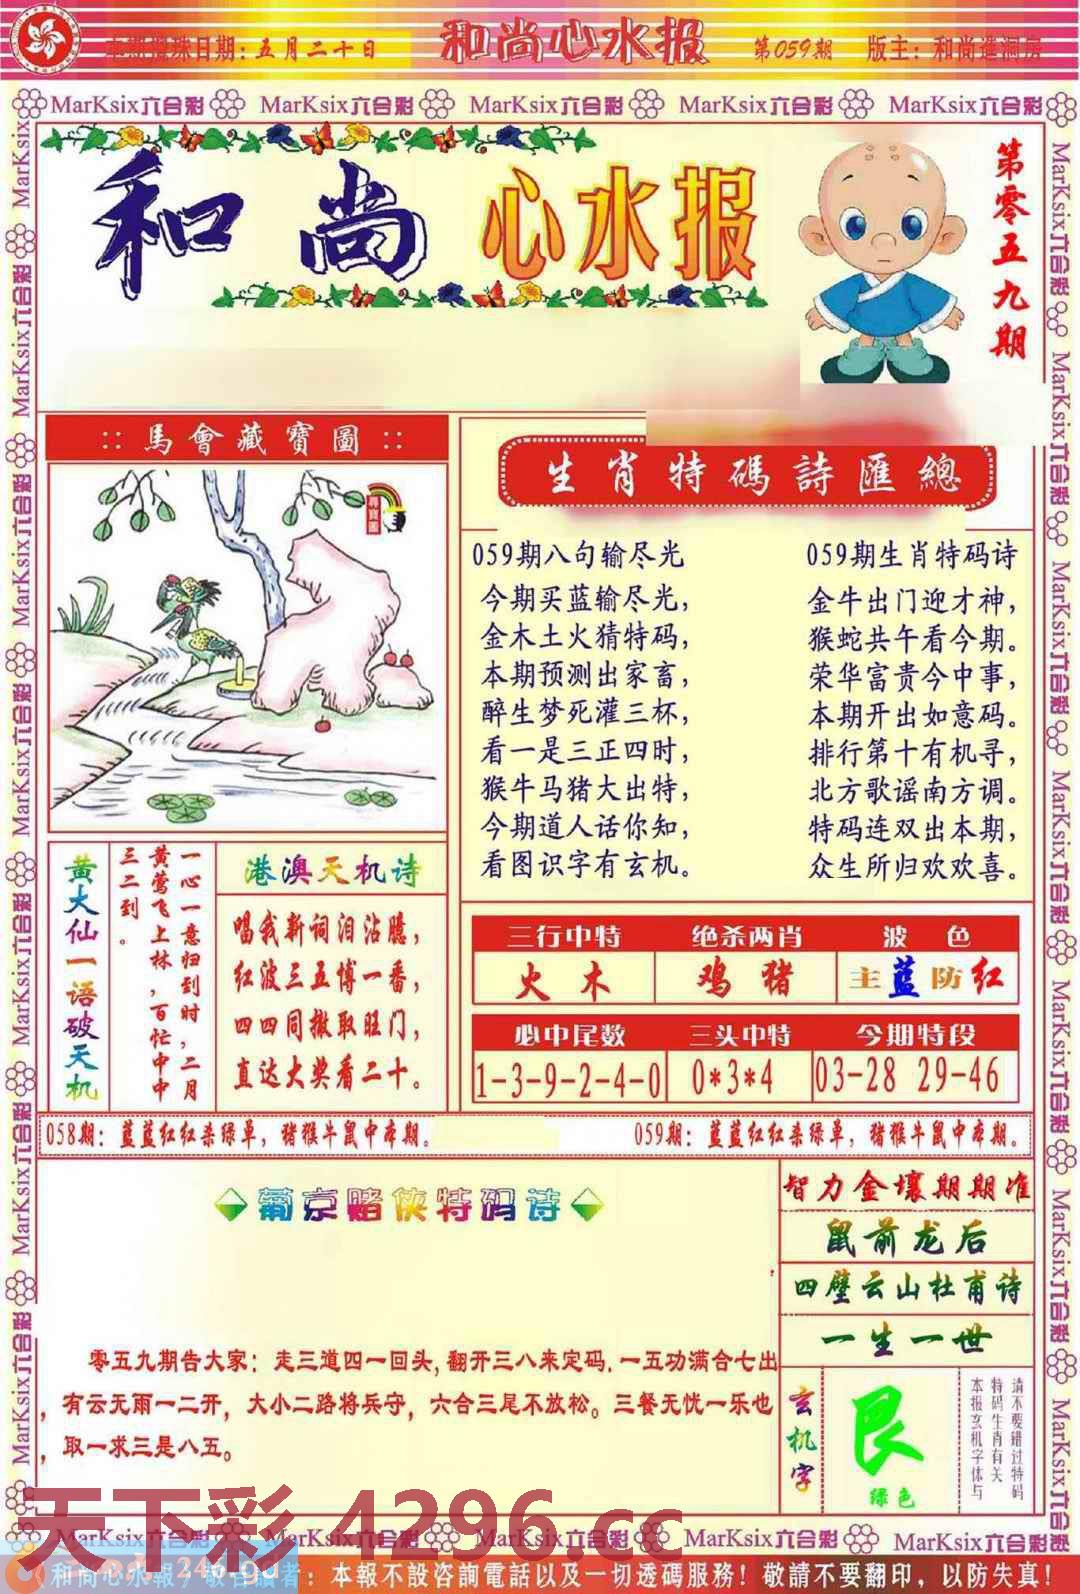 本期搅珠日期:五月二十日
和尚心水报
第059期
版主:和尚進洞房
MarKsix六合彩 MarKsix六合彩 MarKsix六合彩 MarKsix六合彩 MarKsix六合彩
和尚心水报
第零五九期
::馬會藏寶圖::
生肖特碼詩匯總
059期八句输尽光
今期买蓝输尽光,
金木土火猜特码,
本期预测出家畜,
醉生梦死灌三杯,
看一是三正四时,
猴牛马猪大出特,
今期道人话你知,
看图识字有玄机。
059期生肖特码诗
金牛出门迎才神,
猴蛇共午看今期。
荣华富贵今中事,
本期开出如意码。
排行第十有机寻,
北方歌谣南方调。
特码连双出本期,
众生所归欢欢喜。
黄大仙一语破天机
一心一意归到时,二月
黄莺飞上林,百忙中中
三二到。
港澳天机诗
唱我新词泪沾臆,
红波三五博一番,
四四同撤取旺门,
直达大奖看二十。
三行中特 绝杀两肖 波色
火木 鸡猪 主蓝防红
必中尾数 三头中特 今期特段
1-3-9-2-4-0 0*3*4 03-28 29-46
058期:蓝蓝红红杀绿单,猪猴牛鼠中本期。
059期:蓝蓝红红杀绿单,猪猴牛鼠中本期。
葡京赌侠特码诗
零五九期告大家:走三道四一回头,翻开三八来定码.一五功满合七出
,有云无雨一二开,大小二路将兵守,六合三尾不放松。三餐无忧一乐也
,取一求三是八五。
智力金壤期期准
鼠前龙后
四壁云山杜甫诗
一生一世
玄机字
艮
绿色
请不要错过特码
特码生肖有关
本报玄机字体与
天下彩 4296.cc
MarKsix六合彩 MarKsix六合彩 MarKsix六合彩 MarKsix六合彩 MarKsix六合彩
:本報不設咨詢電話以及一切透碼服務!敬請不要翻印,以防失真!